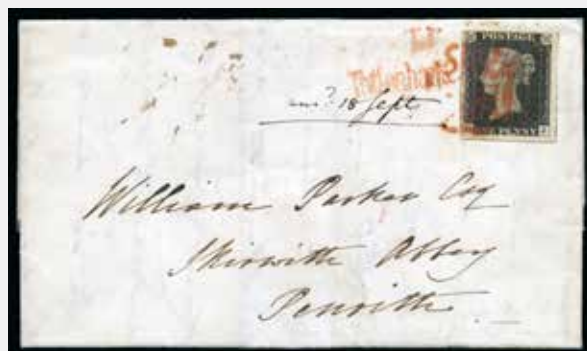 POSTAGE
Tottenham
ansd. 18 Sept
PENNY
William Parker Esq
Skirwith Abbey
Penrith